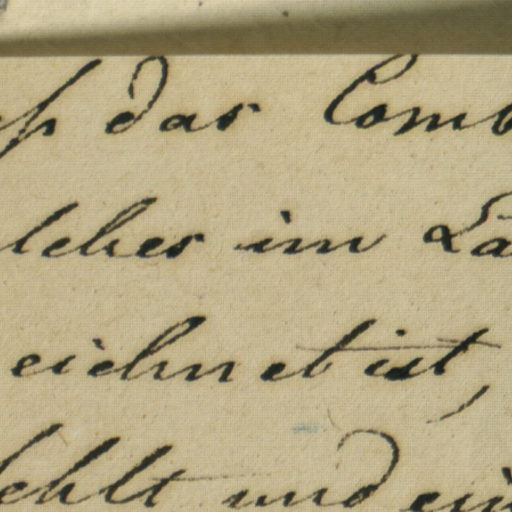 ß das Comb
lches im La
eichnet ist,
ehlt und ein